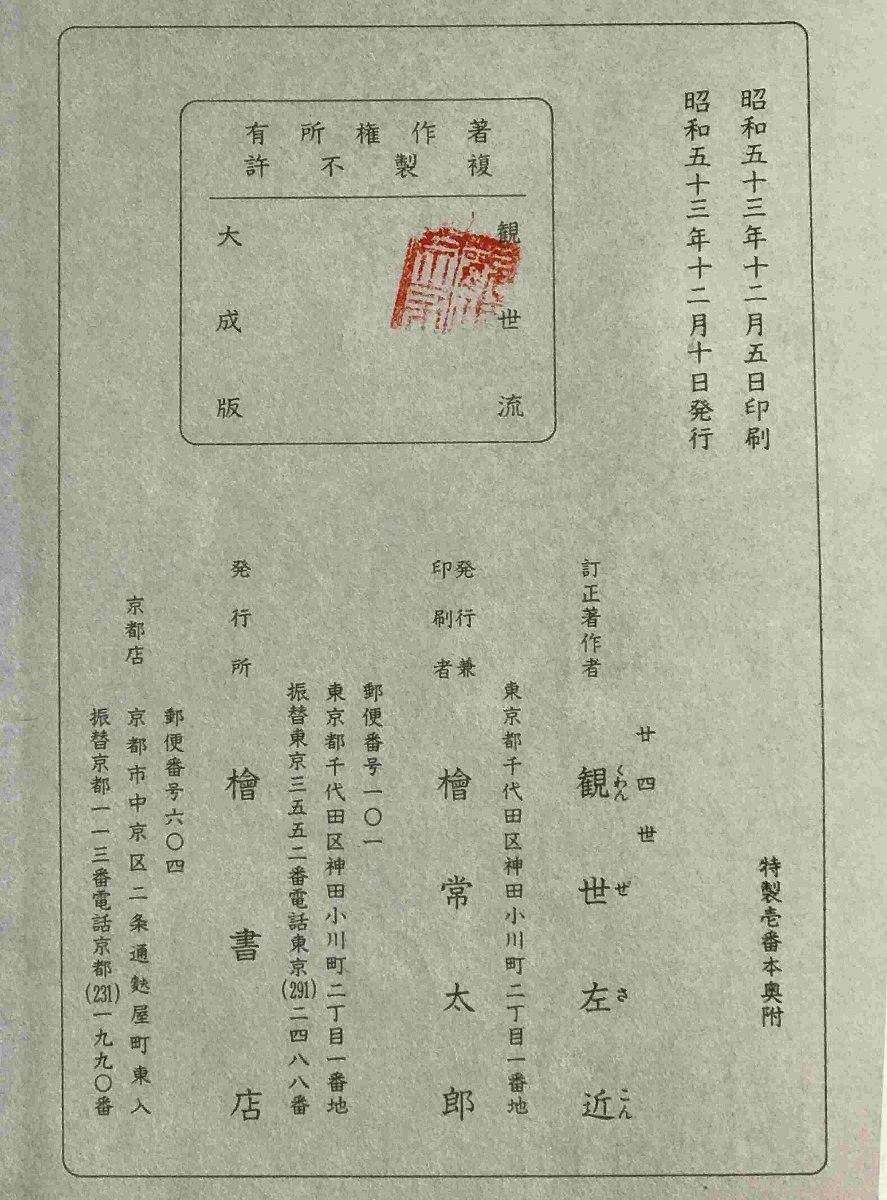 昭和五十三年十二月五日印刷
昭和五十三年十二月十日発行
特製壱番本奥附
著作権所有
複製不許
観世流
大成版
廿四世
訂正著作者 観世左近
くわんぜさこん
東京都千代田区神田小川町二丁目一番地
発行兼
印刷者 檜常太郎
郵便番号一〇一
東京都千代田区神田小川町二丁目一番地
振替東京三五五二番電話東京(291)二四八八番
発行所 檜書店
郵便番号六〇四
京都店 京都市中京区二条通麩屋町東入
振替京都一一三番電話京都(231)一九九〇番